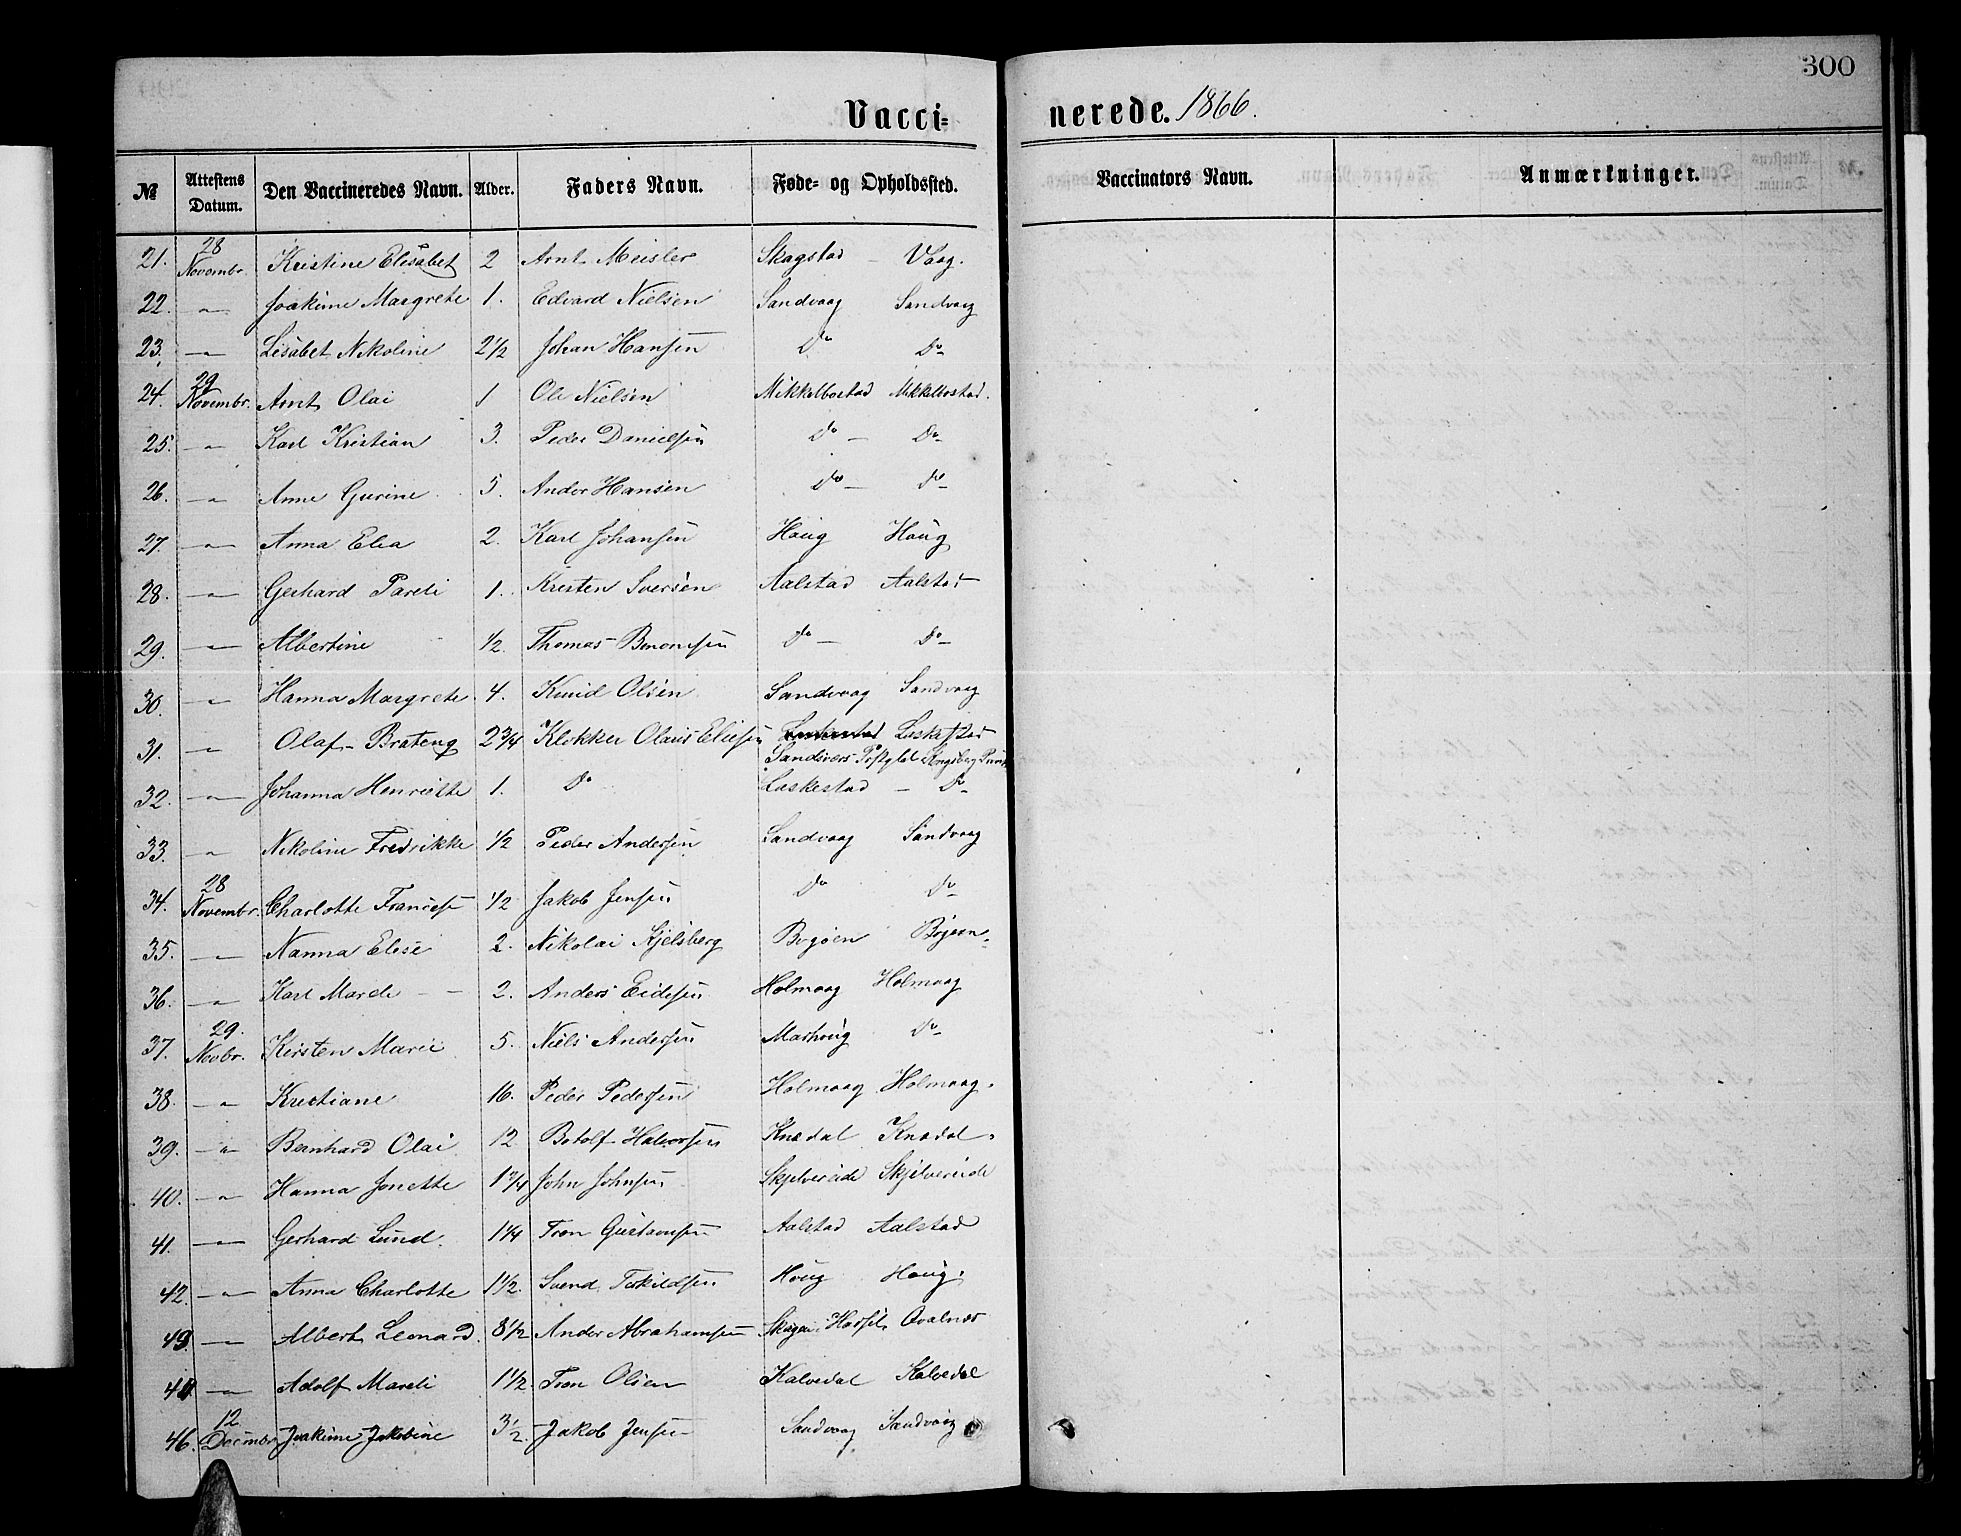 300
Vacci- nerede. 1866.
№ Attestens Datum. Den Vaccineredes Navn. Alder. Faders Navn. Føde- og Opholdssted. Vaccinators Navn. Anmærkninger.
21. 28 Novembr. Kristine Elisabet 2 Arnt Meisler Skagstad - Vaag.
22. -"- Joakime Margrete 1. Edvard Nielsen Sandvaag Sandvaag
23. -"- Lisabet Nikoline 2 1/2 Johan Hansen Do Do
24. 29 Novembr. Arnt Olai 1 Ole Nielsen Mikkelbostad Mikkelbostad.
25. -"- Karl Kristian 3. Peder Danielsen Do - Do
26. -"- Anne Gurine 5. Ander Hansen Do - Do
27. -"- Anna Elea 2. Karl Johansen Houg Houg
28. -"- Gerhard Pareli 1. Kristen Iversen Aalstad Aalstad
29. -"- Albertine 1/2. Thomas Benonisen Do - Do
30. -"- Hanna Margrete 4. Knud Olsen Sandvaag Sandvaag
31. -"- Olaf Brateng 2 3/4 Klokker Olaus Eliesen Laskestad
Sandsvers Pstgld Kongsberg
32. -"- Johanna Henriette 1. Do Laskestad - Do
33. -"- Nikoline Fredrikke 1/2 Peder Andersen Sandvaag Sandvaag
34. 28 Novembr. Charlotte 1/2 Jakob Jensen Do Do
35. -"- Nanna Elise 2. Nikolai Kjelsberg Bogøen Bogøen
36. -"- Karl Mareli - - 2. Anders Eidesen Holmaag Holmaag
37. 29. Novbr. Kirsten Marie 5. Niels Andersen Marhoug Do
38. -"- Kristiane 16. Peder Pedersen Holmaag Holmaag.
39. -"- Bernhard Olai 12 Botolf Halvorsen Knædal Knædal.
40. -"- Hanna Jonette 1 3/4 John Johnsen Skjelvereide Skjelvereide
41. -"- Gerhard Lund. 1 1/4 Tron Gustavsen Aalstad Aalstad
42. -"- Anna Charlotte 1 1/2. Svend Torkildsen Houg Houg.
43. -"- Albert Leonard. 3 1/2 Ander Abrahamsen Hassel Qvalnæs
44. -"- Adolf Mareli 1 1/2. Tron Olsen Kalvedal Kalvedal
46. 12 Decembr Joakime Jakobine 3 1/2. Jakob Jensen Sandvaag Sandvaag